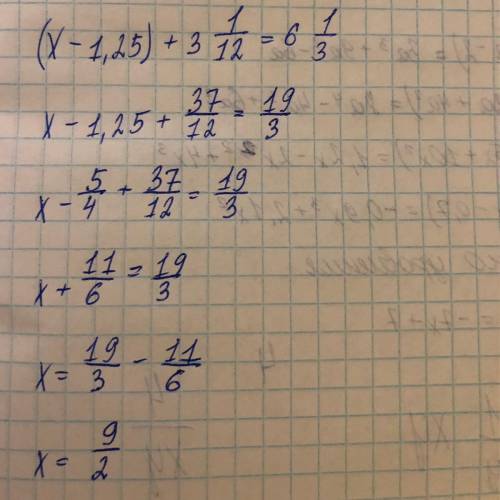 (x - 1,25) + 3 1/12 = 6 1/3
x - 1,25 + 37/12 = 19/3
x - 5/4 + 37/12 = 19/3
x + 11/6 = 19/3
x = 19/3 - 11/6
x = 9/2